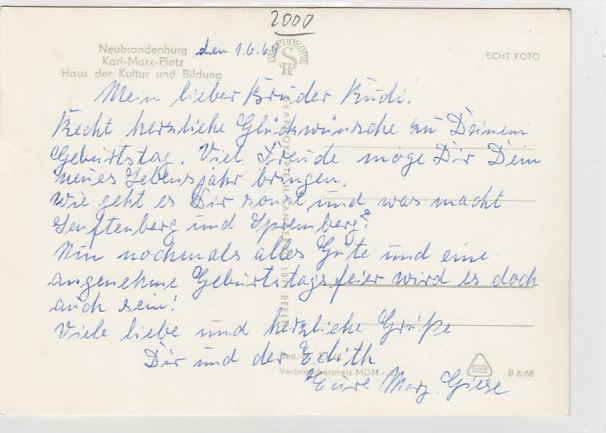 2000
Neubrandenburg
Karl-Marx-Platz
Haus der Kultur und Bildung
den 1.6.69
ECHT FOTO
Mein lieber Bruder Rudi!
Recht herzliche Glückwünsche zu Deinem
Geburtstag. Viel Freude möge Dir Dein
neues Lebensjahr bringen.
Wie geht es Dir sonst und was macht
Senftenberg und Spremberg?
Nun nochmals alles Gute und eine
angenehme Geburtstagsfeier wird es doch
auch sein!
Viele liebe und herzliche Grüße
Dir und der Edith
Verbraucherpreis MDN
Eure Marg. Giese
B 8/68